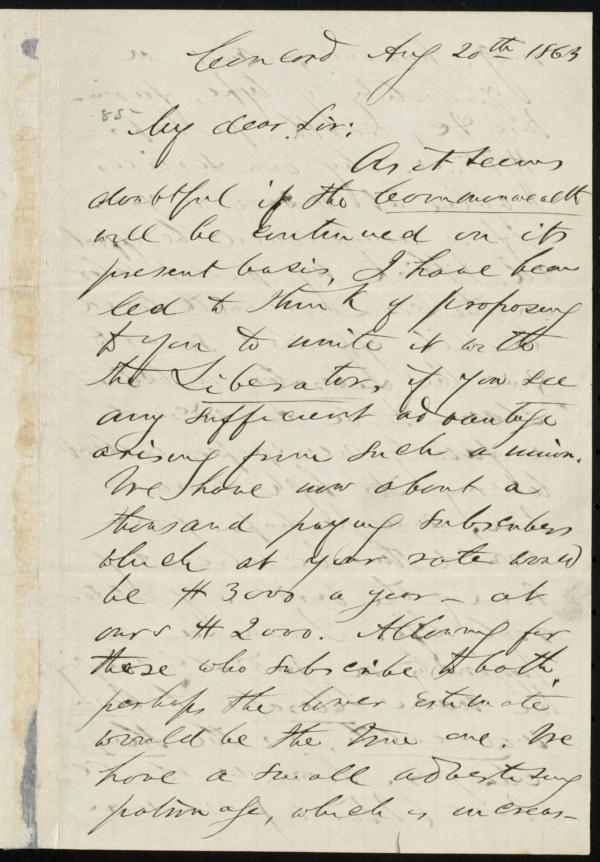 Concord Aug 20th 1863
My dear Sir:
As it seems
doubtful if the Commonwealth
will be continued on its
present basis, I have been
led to think of proposing
to you to unite it with
the Liberator, if you see
any sufficient advantage
arising from such a union.
We have now about a
thousand paying subscribers
which at your rate would
be $3000 a year – at
ours $2000. Allowing for
those who subscribe to both,
perhaps the lower estimate
would be the true one. We
have a small advertising
patronage, which is increas-